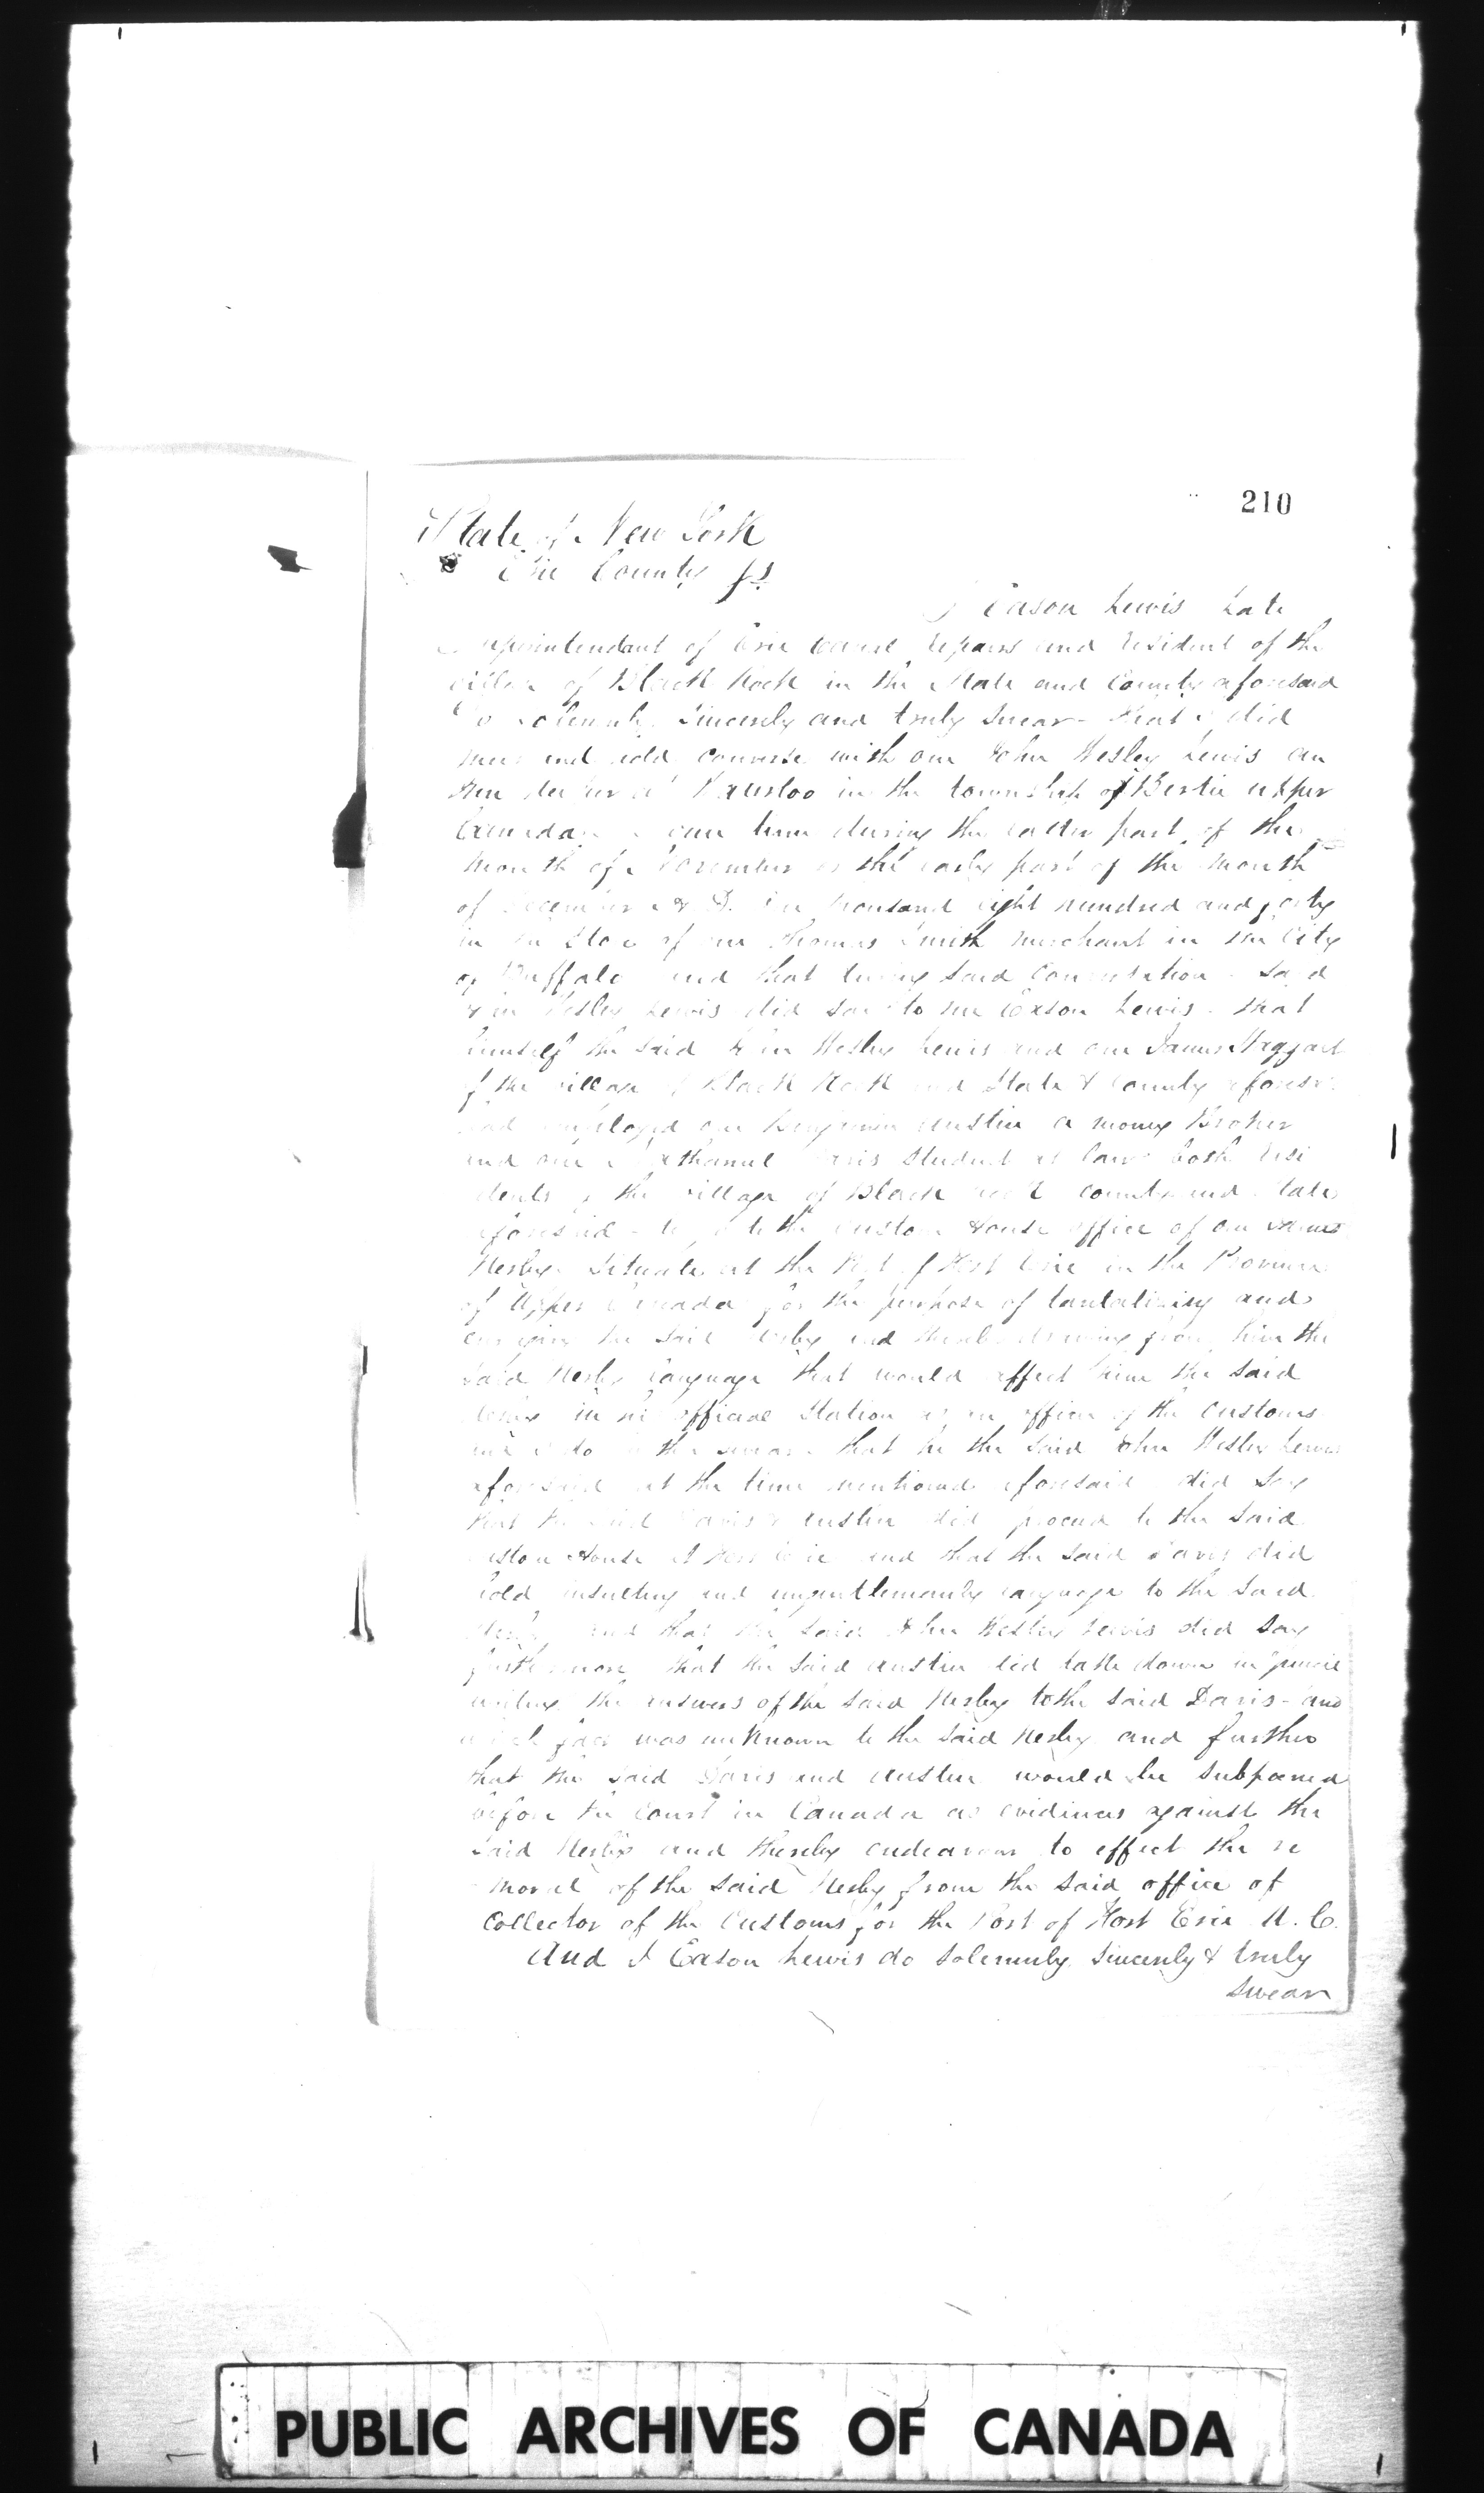 210
State of New York
Erie County ss
I Eason Lewis Late
Superintendant of Erie Canal repairs and resident of the
village of Black Rock in the State and County aforesaid
Do solemnly Sincerely and truly Swear - that I did
meet and hold converse with one John Wesley Lewis an
Inn keeper at Waterloo in the township of Bertie upper
Canada some time during the latter part of the
Month of November or the early part of the Month
of December A.D. One thousand eight hundred and forty
in the Store of one Thomas Smith merchant in the City
of Buffalo and that during said Conversation said
John Wesley Lewis did say to me Eason Lewis that
himself the said John Wesley Lewis and one James Haggart
of the village of Black Rock and State & County aforesaid
had employed one Benjamin Austin a money Broker
and one Nathaniel Davis Student at law both resi
dents of the village of Black Rock County and State
aforesaid - to go to the Custom House office of one James
Kerby Situate at the Port of Fort Erie in the Province
of Upper Canada for the purpose of tantalising and
the said Kerby and thereby drawing from him the
said Kerby language that would affect him the said
Kerby in his official Station as an officer of the Customs
and I do further swear that he the said John Wesley Lewis
aforesaid at the time mentioned aforesaid did say
that the said Davis & Austin did proceed to the said
Custom House at Fort Erie and that the said Davis did
hold insulting and ungentlemanly language to the said
Kerby and that the said John Wesley Lewis did say
furthermore that the said Austin did take down in pencil
writing the answers of the said Kerby to the said Davis - and
which fact was unknown to the said Kerby and further
that the said Davis and Austin would be Subpoened
before the Court in Canada as evidences against the
said Kerby and thereby endeavour to effect the re
moval of the said Kerby from the said office of
Collector of the Customs for the Port of Fort Erie U.C.
And I Eason Lewis do solemnly Sincerely & truly
Swear
PUBLIC ARCHIVES OF CANADA